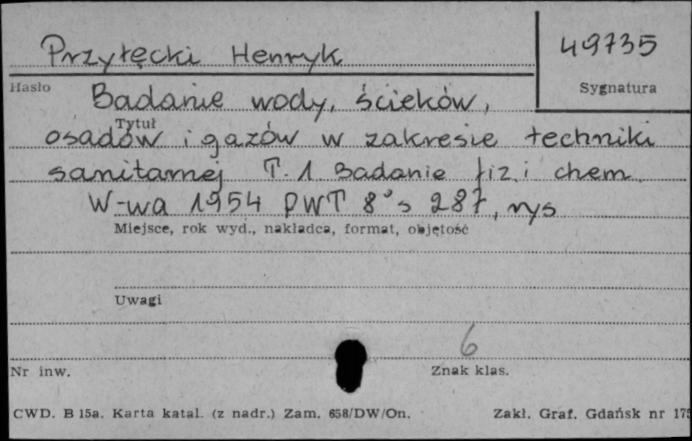 Przyłęcki Henryk
49735
Hasło
Sygnatura
Badanie wody, ścieków,
Tytuł
osadów i gazów w zakresie techniki
sanitarnej T. 1 Badanie fiz. i chem.
W-wa 1954 PWT 8° s 287, rys
Miejsce, rok wyd., nakładca, format, objętość
Uwagi
6
Nr inw.
Znak klas.
CWD. B 15a. Karta katal. (z nadr.) Zam. 658/DW/On.
Zakł. Graf. Gdańsk nr 175